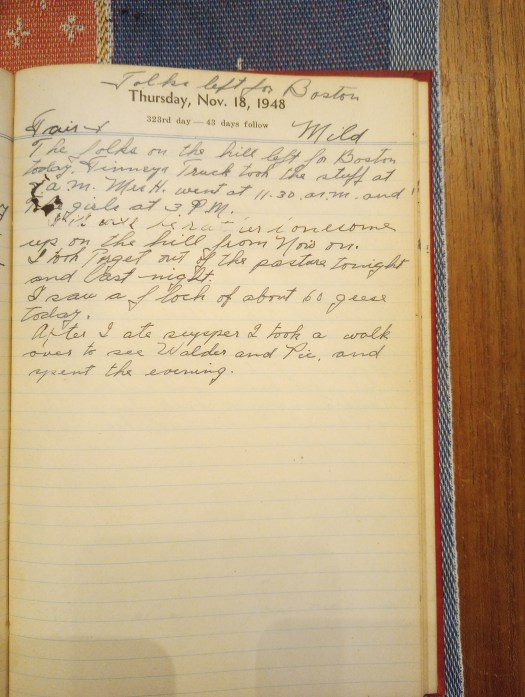 Folks left for Boston
Thursday, Nov. 18, 1948
323rd day — 43 days follow
Fair & Mild
The folks on the hill left for Boston
today. Finneys Truck took the stuff at
a.m. Mrs H. went at 11.30 a.m. and
girls at 3 P.M.
will be rather lonesome
up on the hill from now on.
I took out of the pasture tonight
and last night.
I saw a flock of about 60 geese
today.
After I ate supper I took a walk
over to see Walder and Pic, and
spent the evening.